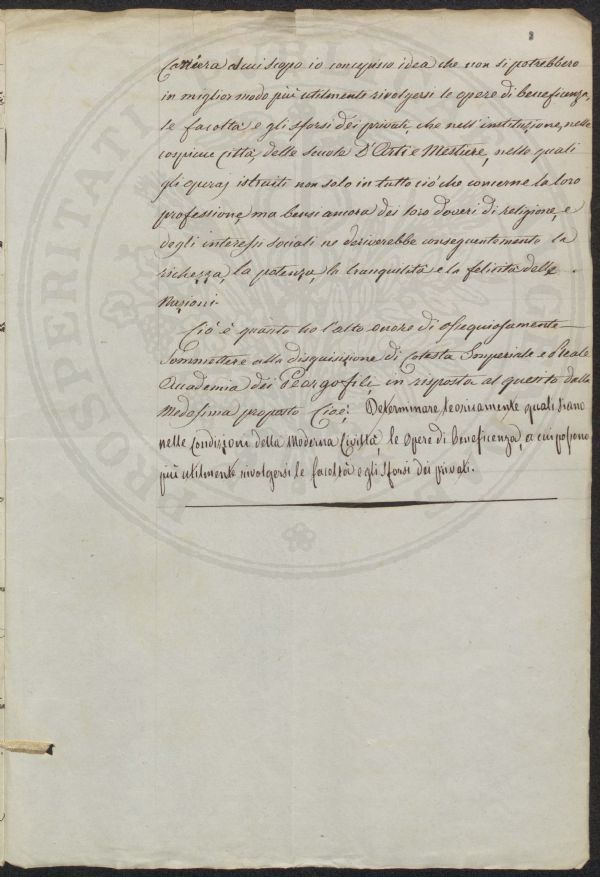 Carriera al cui scopo io concepisco idea che non si potrebbero
in miglior modo più utilmente rivolgersi le opere di beneficenza,
le facoltà e gli sforsi dei privati, che nell'instituzione, nelle
cospicue Città delle Scuole D'Arti e Mestiere, nelle quali
gli operaj istruiti non solo in tutto ciò che concerne la loro
professione, ma bensi ancora dei loro doveri di religione, e
degli interessi sociali ne deriverebbe conseguentemente la
richezza, la potenza, la tranquilità e la felicità delle
Nazioni.
Ciò è quanto ho l'alto onore di ossequiosamente
Sommettere alla disquisizione di Cotesta Imperiale e Reale
Accademia dei Georgofili, in risposta al quesito dalla
Medesima proposto Cioè: Determinare teoricamente quali siano
nelle Condizioni della Moderna Civiltà, le Opere di Beneficenza, a cui possono
più utilmente rivolgersi le facoltà e gli Sforsi dei privati.
PROSPERITATI